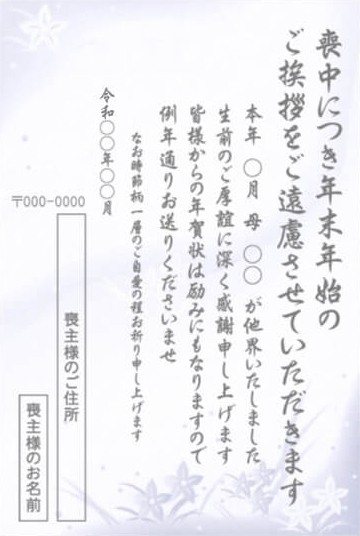 喪中につき年末年始の
ご挨拶をご遠慮させていただきます
本年 〇月 母 〇〇 が他界いたしました
生前のご厚誼に深く感謝申し上げます
皆様からの年賀状は励みにもなりますので
例年通りお送りくださいませ
なお時節柄一層のご自愛の程お祈り申し上げます
令和〇〇年〇〇月
〒000-0000
喪主様のご住所
喪主様のお名前